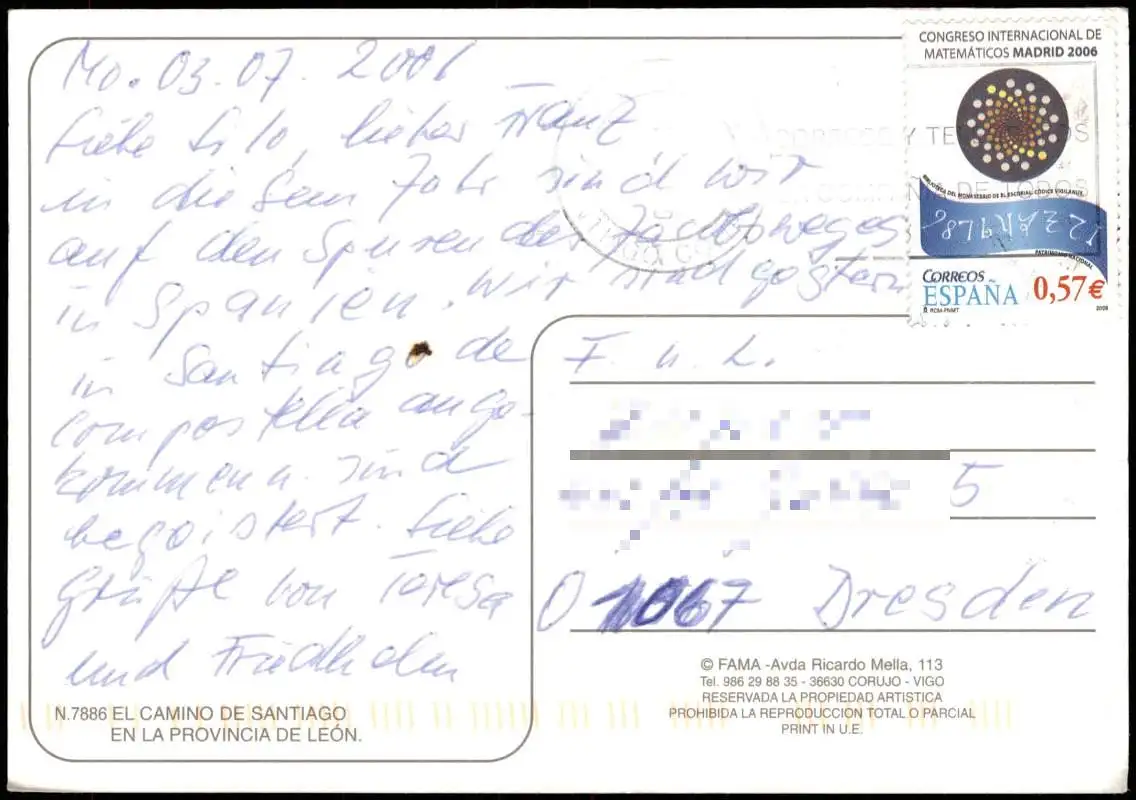 Mo. 03.07. 2006
Liebe Lilo, lieber Franz
in diesem Jahr sind wir
auf den Spuren des Jacobsweges
in Spanien. Wir sind gestern
in Santiago de
Compostella ange-
kommen u. sind
begeistert. Liebe
Grüße von Teresa
und Friedhelm
N.7886 EL CAMINO DE SANTIAGO
EN LA PROVINCIA DE LEÓN.
CONGRESO INTERNACIONAL DE
MATEMÁTICOS MADRID 2006
CORREOS Y TE OS
DE TODOS
BIBLIOTECA DEL MONASTERIO DE EL ESCORIAL. CÓDICE VIGILANUS
PATRIMONIO NACIONAL
CORREOS
ESPAÑA 0,57€
RCM-FNMT 2006
F. u. L.
5
01067 Dresden
© FAMA -Avda Ricardo Mella, 113
Tel. 986 29 88 35 - 36630 CORUJO - VIGO
RESERVADA LA PROPIEDAD ARTISTICA
PROHIBIDA LA REPRODUCCIÓN TOTAL O PARCIAL
PRINT IN U.E.